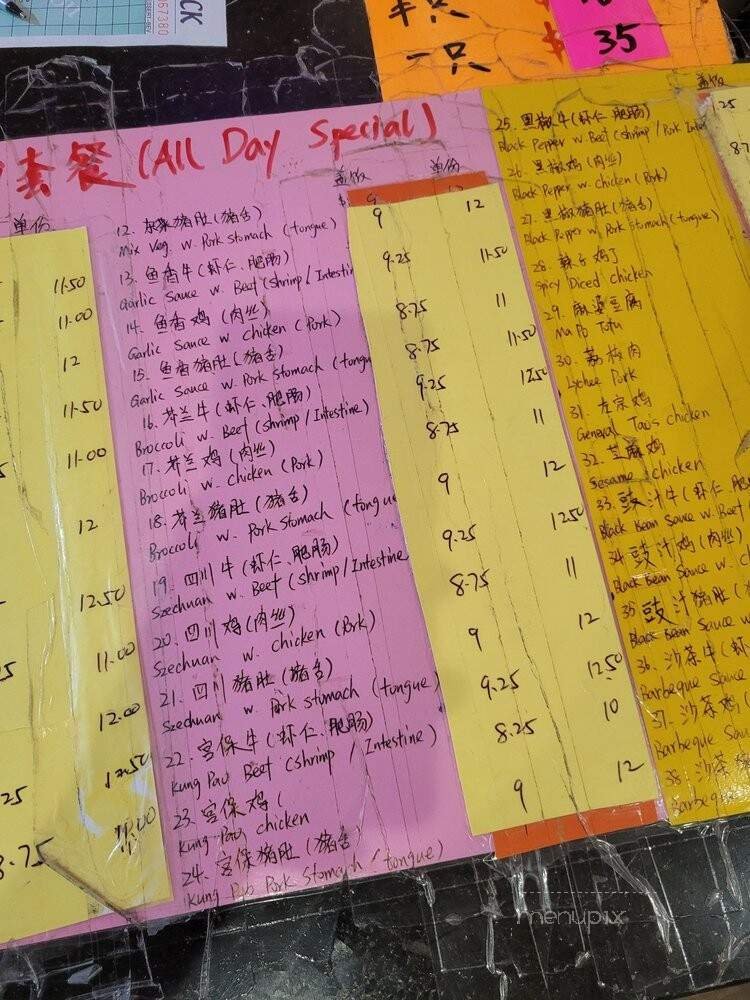 57380
CK
半只
一只
$
35
套餐 (All Day Special)
盖饭 单份
单份
11.50
11.00
12
11.50
11.00
12
12.50
11.00
12.00
12.50
8.75 11.00
12. 杂菜猪肚(猪舌)
Mix Veg. w. Pork Stomach (tongue)
13. 鱼香牛(虾仁、肥肠)
Garlic Sauce w. Beef (Shrimp / Intestin
14. 鱼香鸡 (肉丝)
Garlic Sauce w. chicken (Pork)
15. 鱼香猪肚(猪舌)
Garlic Sauce w. Pork Stomach (tongu
16. 芥兰牛(虾仁、肥肠)
Broccoli w. Beef (shrimp / Intestine)
17. 芥兰鸡(肉丝)
Broccoli w. chicken (Pork)
18. 芥兰猪肚(猪舌)
Broccoli w. Pork stomach (tongue
19. 四川牛(虾仁、肥肠)
Szechuan w. Beef (shrimp / Intestine
20. 四川鸡(肉丝)
Szechuan w. chicken (Pork)
21. 四川猪肚(猪舌)
Szechuan w. Pork stomach (tongue)
22. 宫保牛(虾仁、肥肠)
Kung Pau Beef (shrimp / Intestine)
23. 宫保鸡(
Kung Pau chicken
24. 宫保猪肚(猪舌)
Kung Pao Pork Stomach / tongue)
9 12
9.25 11.50
8.75 11
8.75 11.50
9.25 12.50
8.75 11
9 12
9.25 12.50
8.75 11
9 12
9.25 12.50
8.25 10
9 12
盖饭
25. 黑椒牛(虾仁、肥肠)
Black Pepper w. Beef (shrimp / Pork Intest
26. 黑椒鸡(肉丝)
Black Pepper w. chicken (Pork)
27. 黑椒猪肚(猪舌)
Black Pepper w. Pork Stomach (tongue)
28. 辣子鸡丁
Spicy Diced chicken
29. 麻婆豆腐
Ma Po Tofu
30. 荔枝肉
Lychee Pork
31. 左宗鸡
General Tao's chicken
32. 芝麻鸡
Sesame chicken
33. 豉汁牛(虾仁、肥
Black Bean Sauce w. Beef
34. 豉汁鸡(肉丝)
Black Bean Sauce w. ch
35. 豉汁猪肚(猪
Black Bean Sauce w
36. 沙茶牛(虾
Barbeque Sauce
37. 沙茶鸡
Barbeque Sau
38. 沙茶猪
Barbeque
menupix